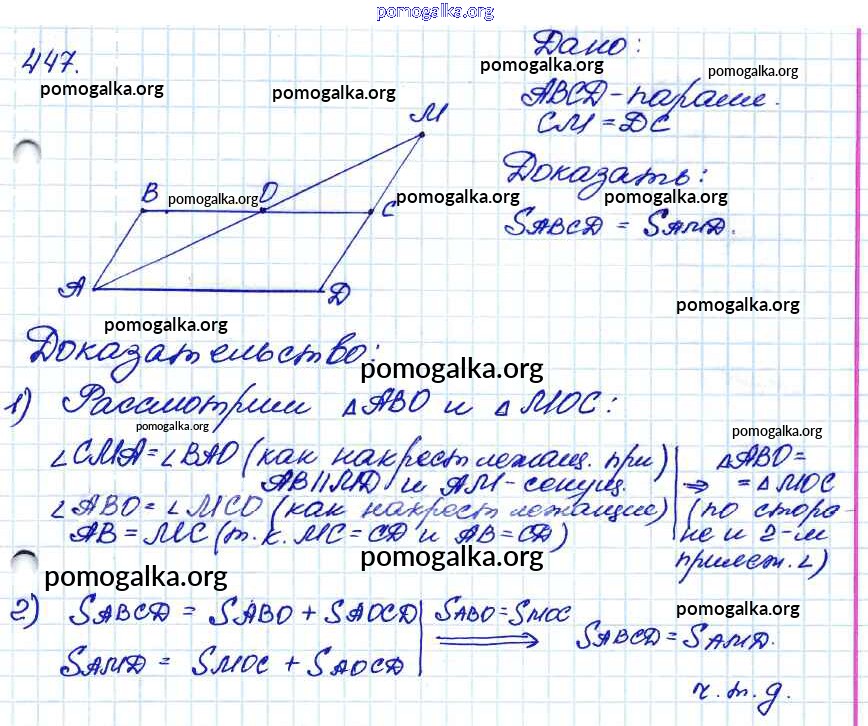 pomogalka.org
447.
pomogalka.org
pomogalka.org
Дано:
pomogalka.org
pomogalka.org
ABCD - паралл.
CM = DC
M
B
pomogalka.org
O
C
A
D
Доказать:
pomogalka.org
pomogalka.org
SABCD = SAMD.
pomogalka.org
pomogalka.org
Доказательство:
pomogalka.org
1) Рассмотрим △ABO и △MOC:
pomogalka.org
pomogalka.org
∠CMA = ∠BAO (как накрест лежащ. при)
AB||MD и AM - секущ.
∠ABO = ∠MCO (как накрест лежащие)
AB = MC (т. к. MC = CD и AB = CD)
⇒ △ABO =
= △MOC
(по сторо-
не и 2-м
прилеж. ∠)
pomogalka.org
pomogalka.org
2) SABCD = SABO + SAOCD
SAMD = SMOC + SAOCD
SABO = SMOC
⇒
pomogalka.org
SABCD = SAMD.
ч. т. д.